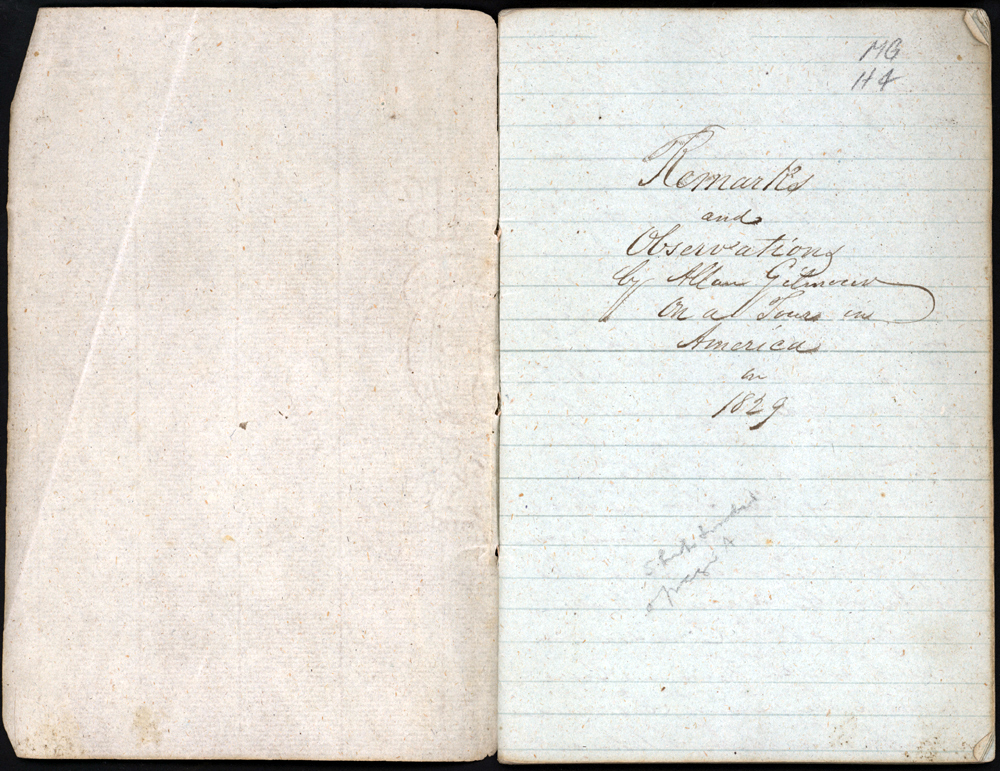 MG
H4
Remarks
and
Observations
by Allan Gilmour
on a Tour in
America
in
1829